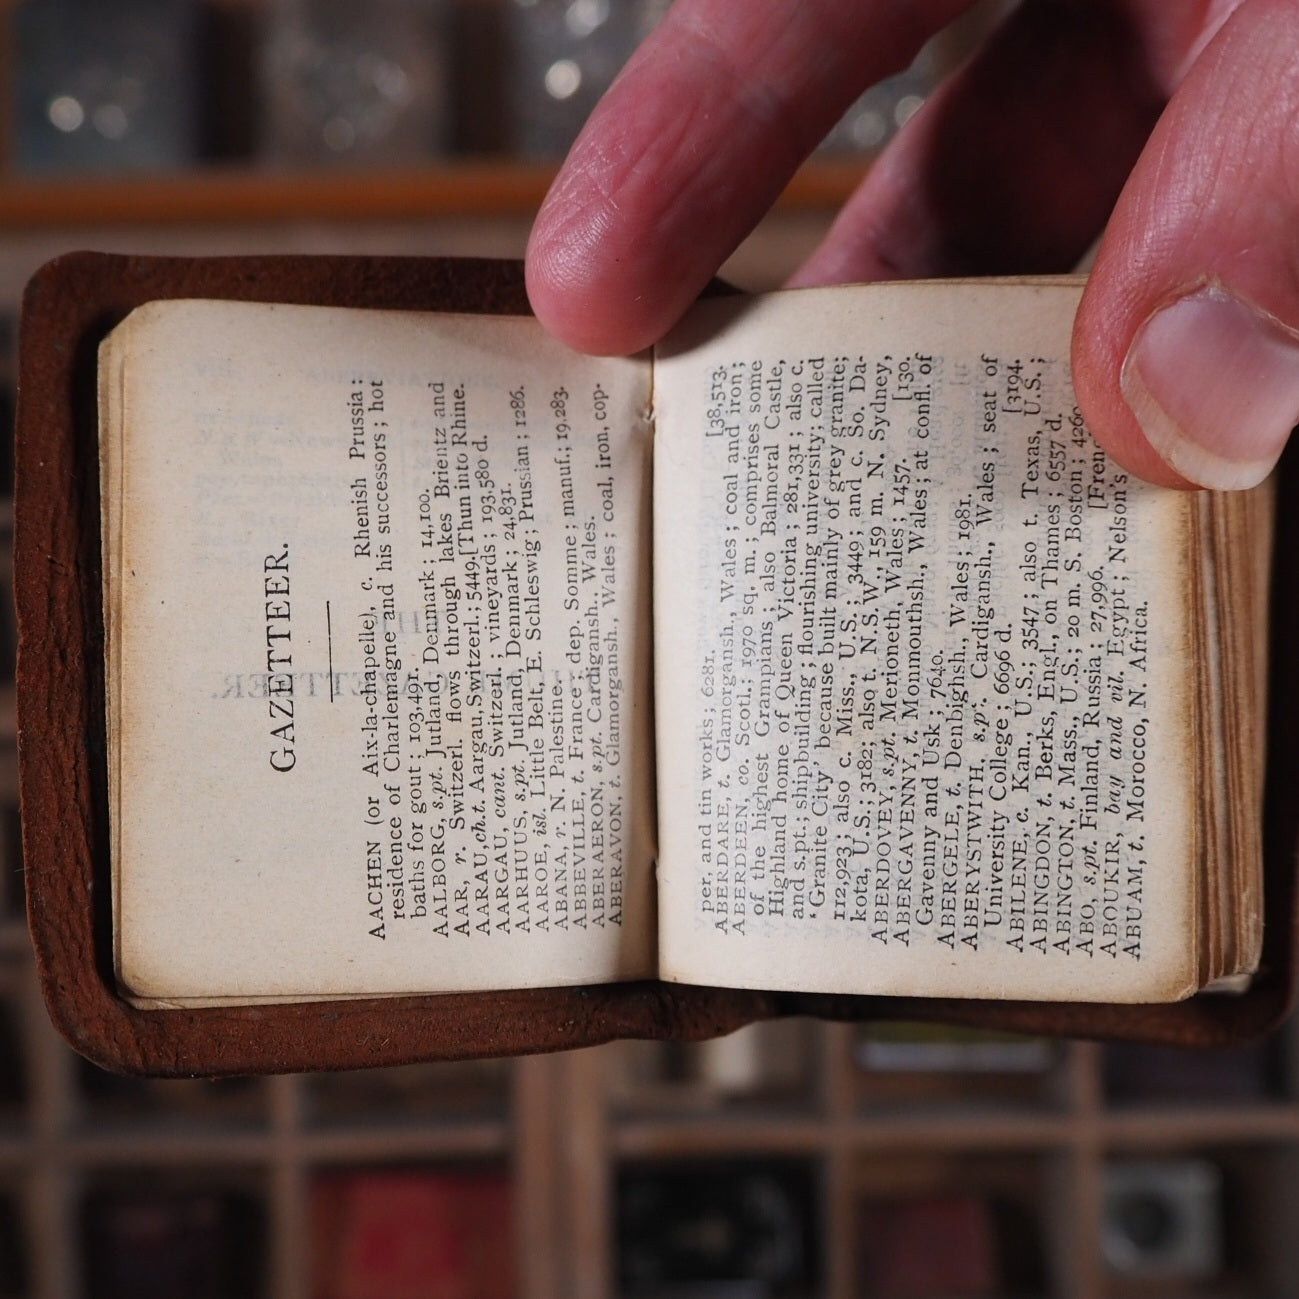 GAZETTEER.
AACHEN (or Aix-la-chapelle), c. Rhenish Prussia;
residence of Charlemagne and his successors; hot
baths for gout; 103,491.
AALBORG, s.pt. Jutland, Denmark; 14,100.
AAR, r. Switzerl. flows through lakes Brientz and
AARAU, ch.t. Aargau, Switzerl.; 5449. [Thun into Rhine.
AARGAU, cant. Switzerl.; vineyards; 193,580 d.
AARHUUS, s.pt. Jutland, Denmark; 24,831.
AAROE, isl. Little Belt, E. Schleswig; Prussian; 1286.
ABANA, r. N. Palestine.
ABBEVILLE, t. France; dep. Somme; manuf.; 19,283.
ABERAERON, s.pt. Cardigansh., Wales.
ABERAVON, t. Glamorgansh., Wales; coal, iron, cop-
per, and tin works; 6281. [38,513.
ABERDARE, t. Glamorgansh., Wales; coal and iron;
ABERDEEN, co. Scotl.; 1970 sq. m.; comprises some
of the highest Grampians; also Balmoral Castle,
Highland home of Queen Victoria; 281,331; also c.
and s.pt.; shipbuilding; flourishing university; called
'Granite City,' because built mainly of grey granite;
112,923; also c. Miss., U.S.; 3449; and c. So. Da-
kota, U.S.; 3182; also t. N.S.W., 159 m. N. Sydney,
ABERDOVEY, s.pt. Merioneth, Wales; 1457. [130.
ABERGAVENNY, t. Monmouthsh., Wales; at confl. of
Gavenny and Usk; 7640.
ABERGELE, t. Denbighsh., Wales; 1981.
ABERYSTWITH, s.pt. Cardigansh., Wales; seat of
University College; 6696 d. [3194.
ABILENE, c. Kan., U.S.; 3547; also t. Texas, U.S.;
ABINGDON, t. Berks, Engl., on Thames; 6557 d.
ABINGTON, t. Mass., U.S.; 20 m. S. Boston; 4260
ABO, s.pt. Finland, Russia; 27,996.
ABOUKIR, bay and vil. Egypt; Nelson's
ABUAM, t. Morocco, N. Africa.